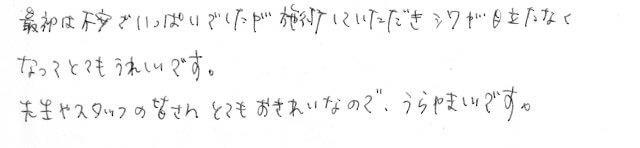 最初は不安でいっぱいでしたが施術していただきシワが目立たなく
なってとてもうれしいです。
先生やスタッフの皆さんとてもおきれいなので、うらやましいです。